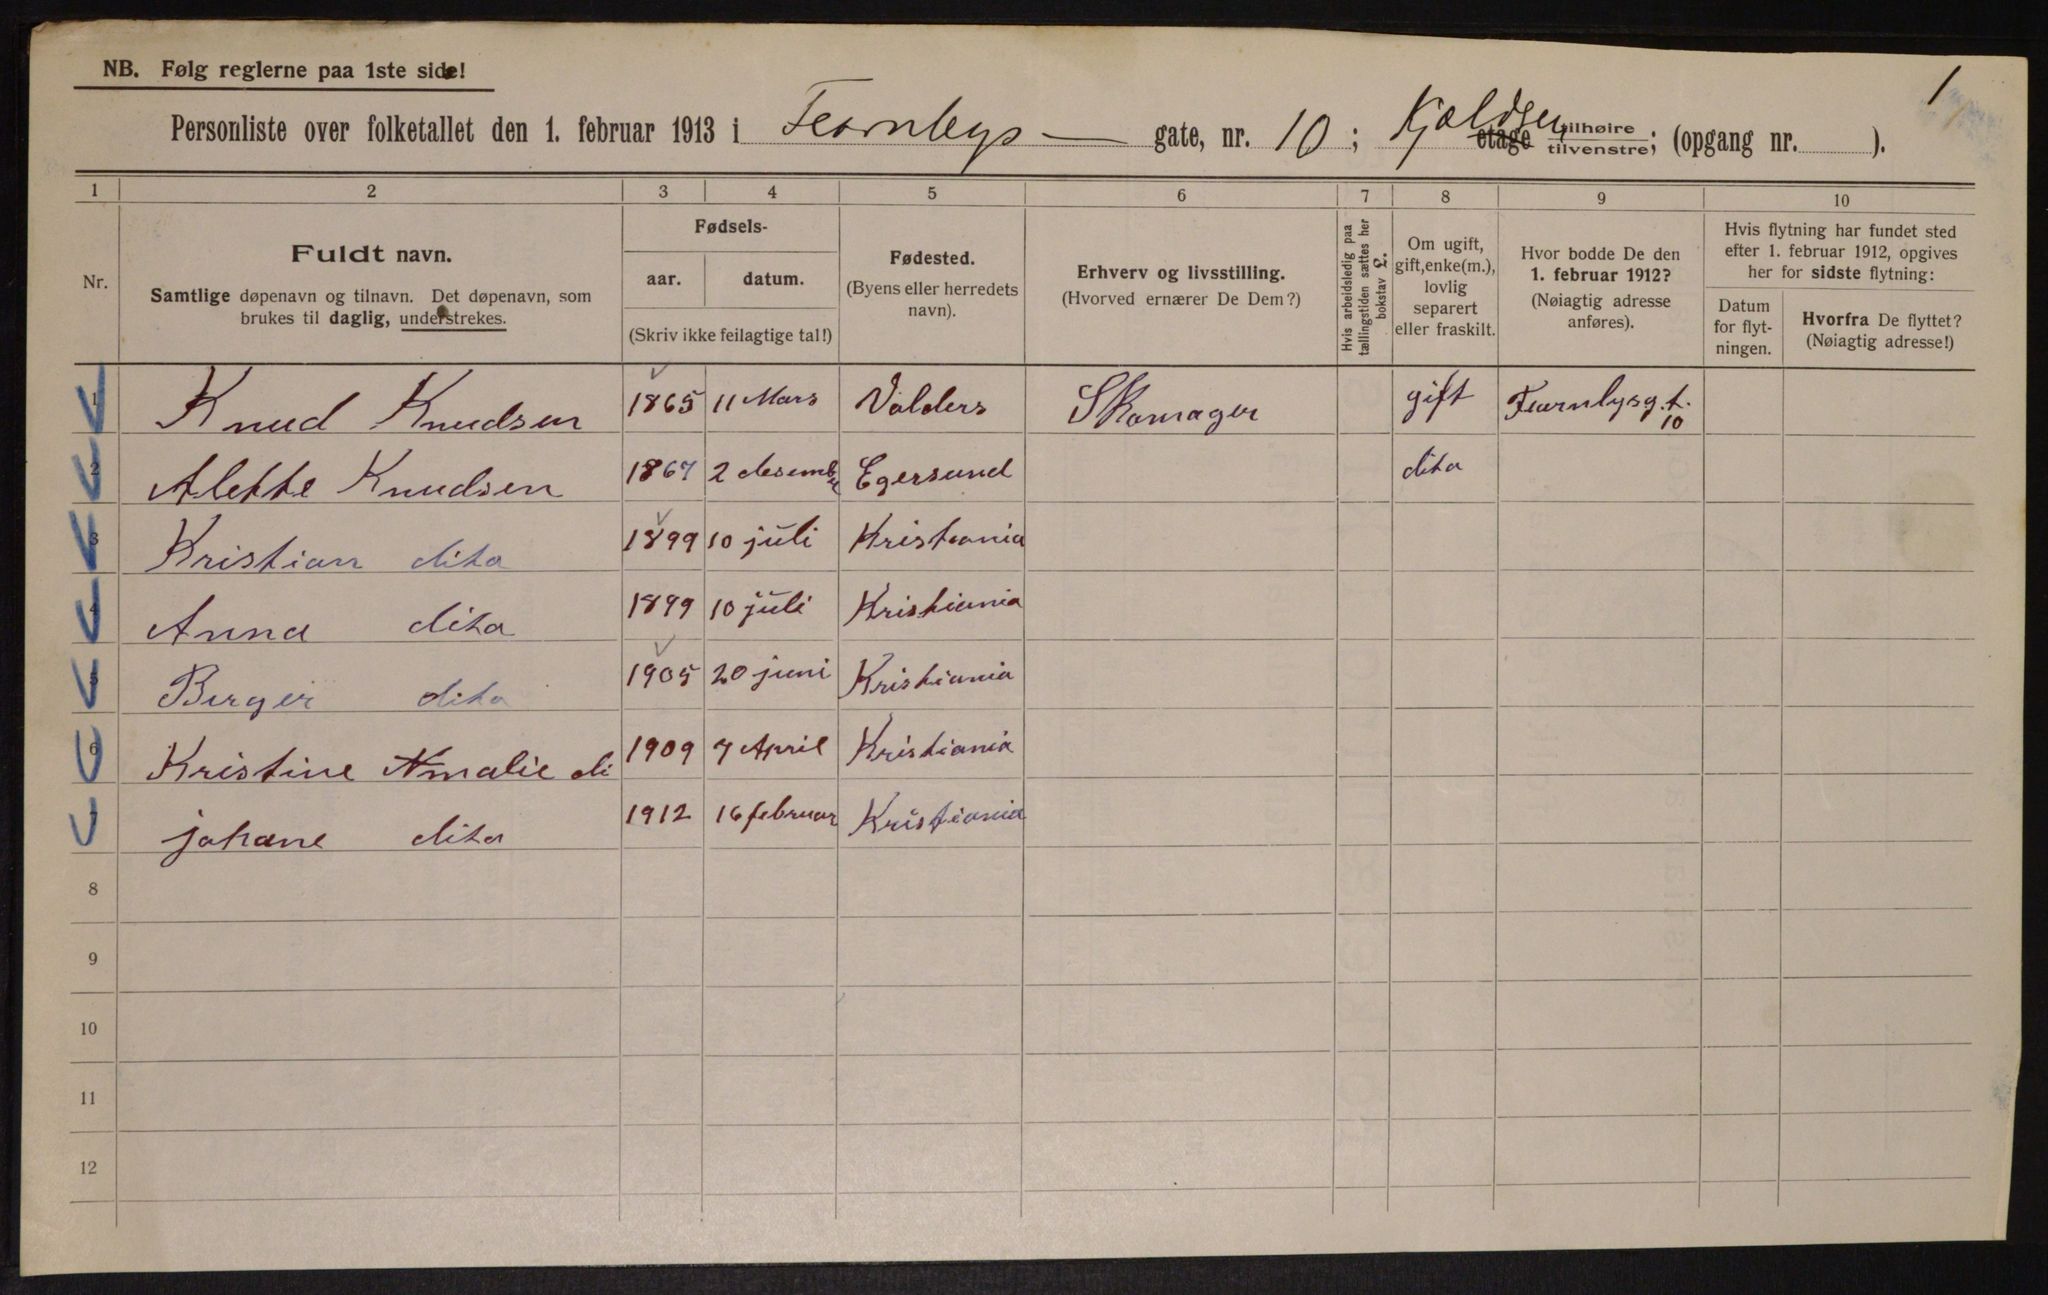 NB. Følg reglerne paa 1ste side!
1
Personliste over folketallet den 1. februar 1913 i Fearnleys gate, nr. 10; Kjælderen etage tilhøire tilvenstre; (opgang nr. ).
1 2 3 4 5 6 7 8 9 10
Nr.
Fuldt navn.
Samtlige døpenavn og tilnavn. Det døpenavn, som
brukes til daglig, understrekes.
Fødsels-
aar. datum.
(Skriv ikke feilagtige tal!)
Fødested.
(Byens eller herredets
navn).
Erhverv og livsstilling.
(Hvorved ernærer De Dem?)
Hvis arbeidsledig paa
tællingstiden sættes her
bokstav L.
Om ugift,
gift, enke(m.),
lovlig
separert
eller fraskilt.
Hvor bodde De den
1. februar 1912?
(Nøiagtig adresse
anføres).
Hvis flytning har fundet sted
efter 1. februar 1912, opgives
her for sidste flytning:
Datum
for flyt-
ningen.
Hvorfra De flyttet?
(Nøiagtig adresse!)
1 Knud Knudsen 1865 11 Mars Valders Skomager gift Fearnlysg.t. 10
2 Alette Knudsen 1867 2 desember Egersund dito
3 Kristian dito 1899 10 juli Kristiania
4 Anna dito 1899 10 juli Kristiania
5 Birger dito 1905 20 juni Kristiania
6 Kristine Amalie di 1909 7 April Kristiania
7 johane dito 1912 16 februar Kristiania
8
9
10
11
12